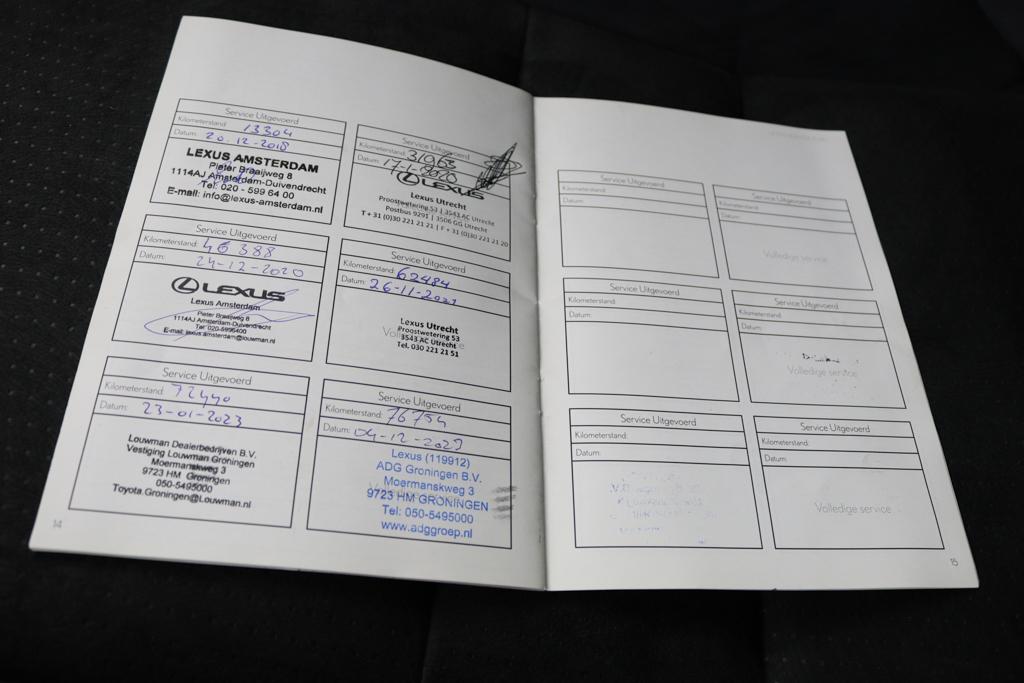 Service Uitgevoerd
Kilometerstand: 13304
Datum: 20-12-2018
LEXUS AMSTERDAM
Pieter Braaijweg 8
1114AJ Amsterdam-Duivendrecht
Tel: 020 - 599 64 00
E-mail: info@lexus-amsterdam.nl
Service Uitgevoerd
Kilometerstand: 31963
Datum: 17-1-2020
LEXUS
Lexus Utrecht
Proostwetering 53 | 3543 AC Utrecht
Postbus 9291 | 3506 GG Utrecht
T + 31 (0)30 221 21 21 | F + 31 (0)30 221 21 20
Service Uitgevoerd
Kilometerstand: 46388
Datum: 24-12-2020
LEXUS
Lexus Amsterdam
Pieter Braaijweg 8
1114AJ Amsterdam-Duivendrecht
Tel: 020-5996400
E-mail: lexus.amsterdam@louwman.nl
Service Uitgevoerd
Kilometerstand: 62484
Datum: 26-11-2021
Lexus Utrecht
Proostwetering 53
3543 AC Utrecht
Tel. 030 221 21 51
Service Uitgevoerd
Kilometerstand: 72440
Datum: 23-01-2023
Louwman Dealerbedrijven B.V.
Vestiging Louwman Groningen
Moermanskweg 3
9723 HM Groningen
050-5495000
Toyota.Groningen@Louwman.nl
Service Uitgevoerd
Kilometerstand: 76754
Datum: 04-12-2023
Lexus (119912)
ADG Groningen B.V.
Moermanskweg 3
9723 HM GRONINGEN
Tel: 050-5495000
www.adggroep.nl
14
Service Uitgevoerd
Kilometerstand:
Datum:
Service Uitgevoerd
Kilometerstand:
Datum:
Volledige service
Service Uitgevoerd
Kilometerstand:
Datum:
Service Uitgevoerd
Kilometerstand:
Datum:
Volledige service
Service Uitgevoerd
Kilometerstand:
Datum:
Service Uitgevoerd
Kilometerstand:
Datum:
Volledige service
15